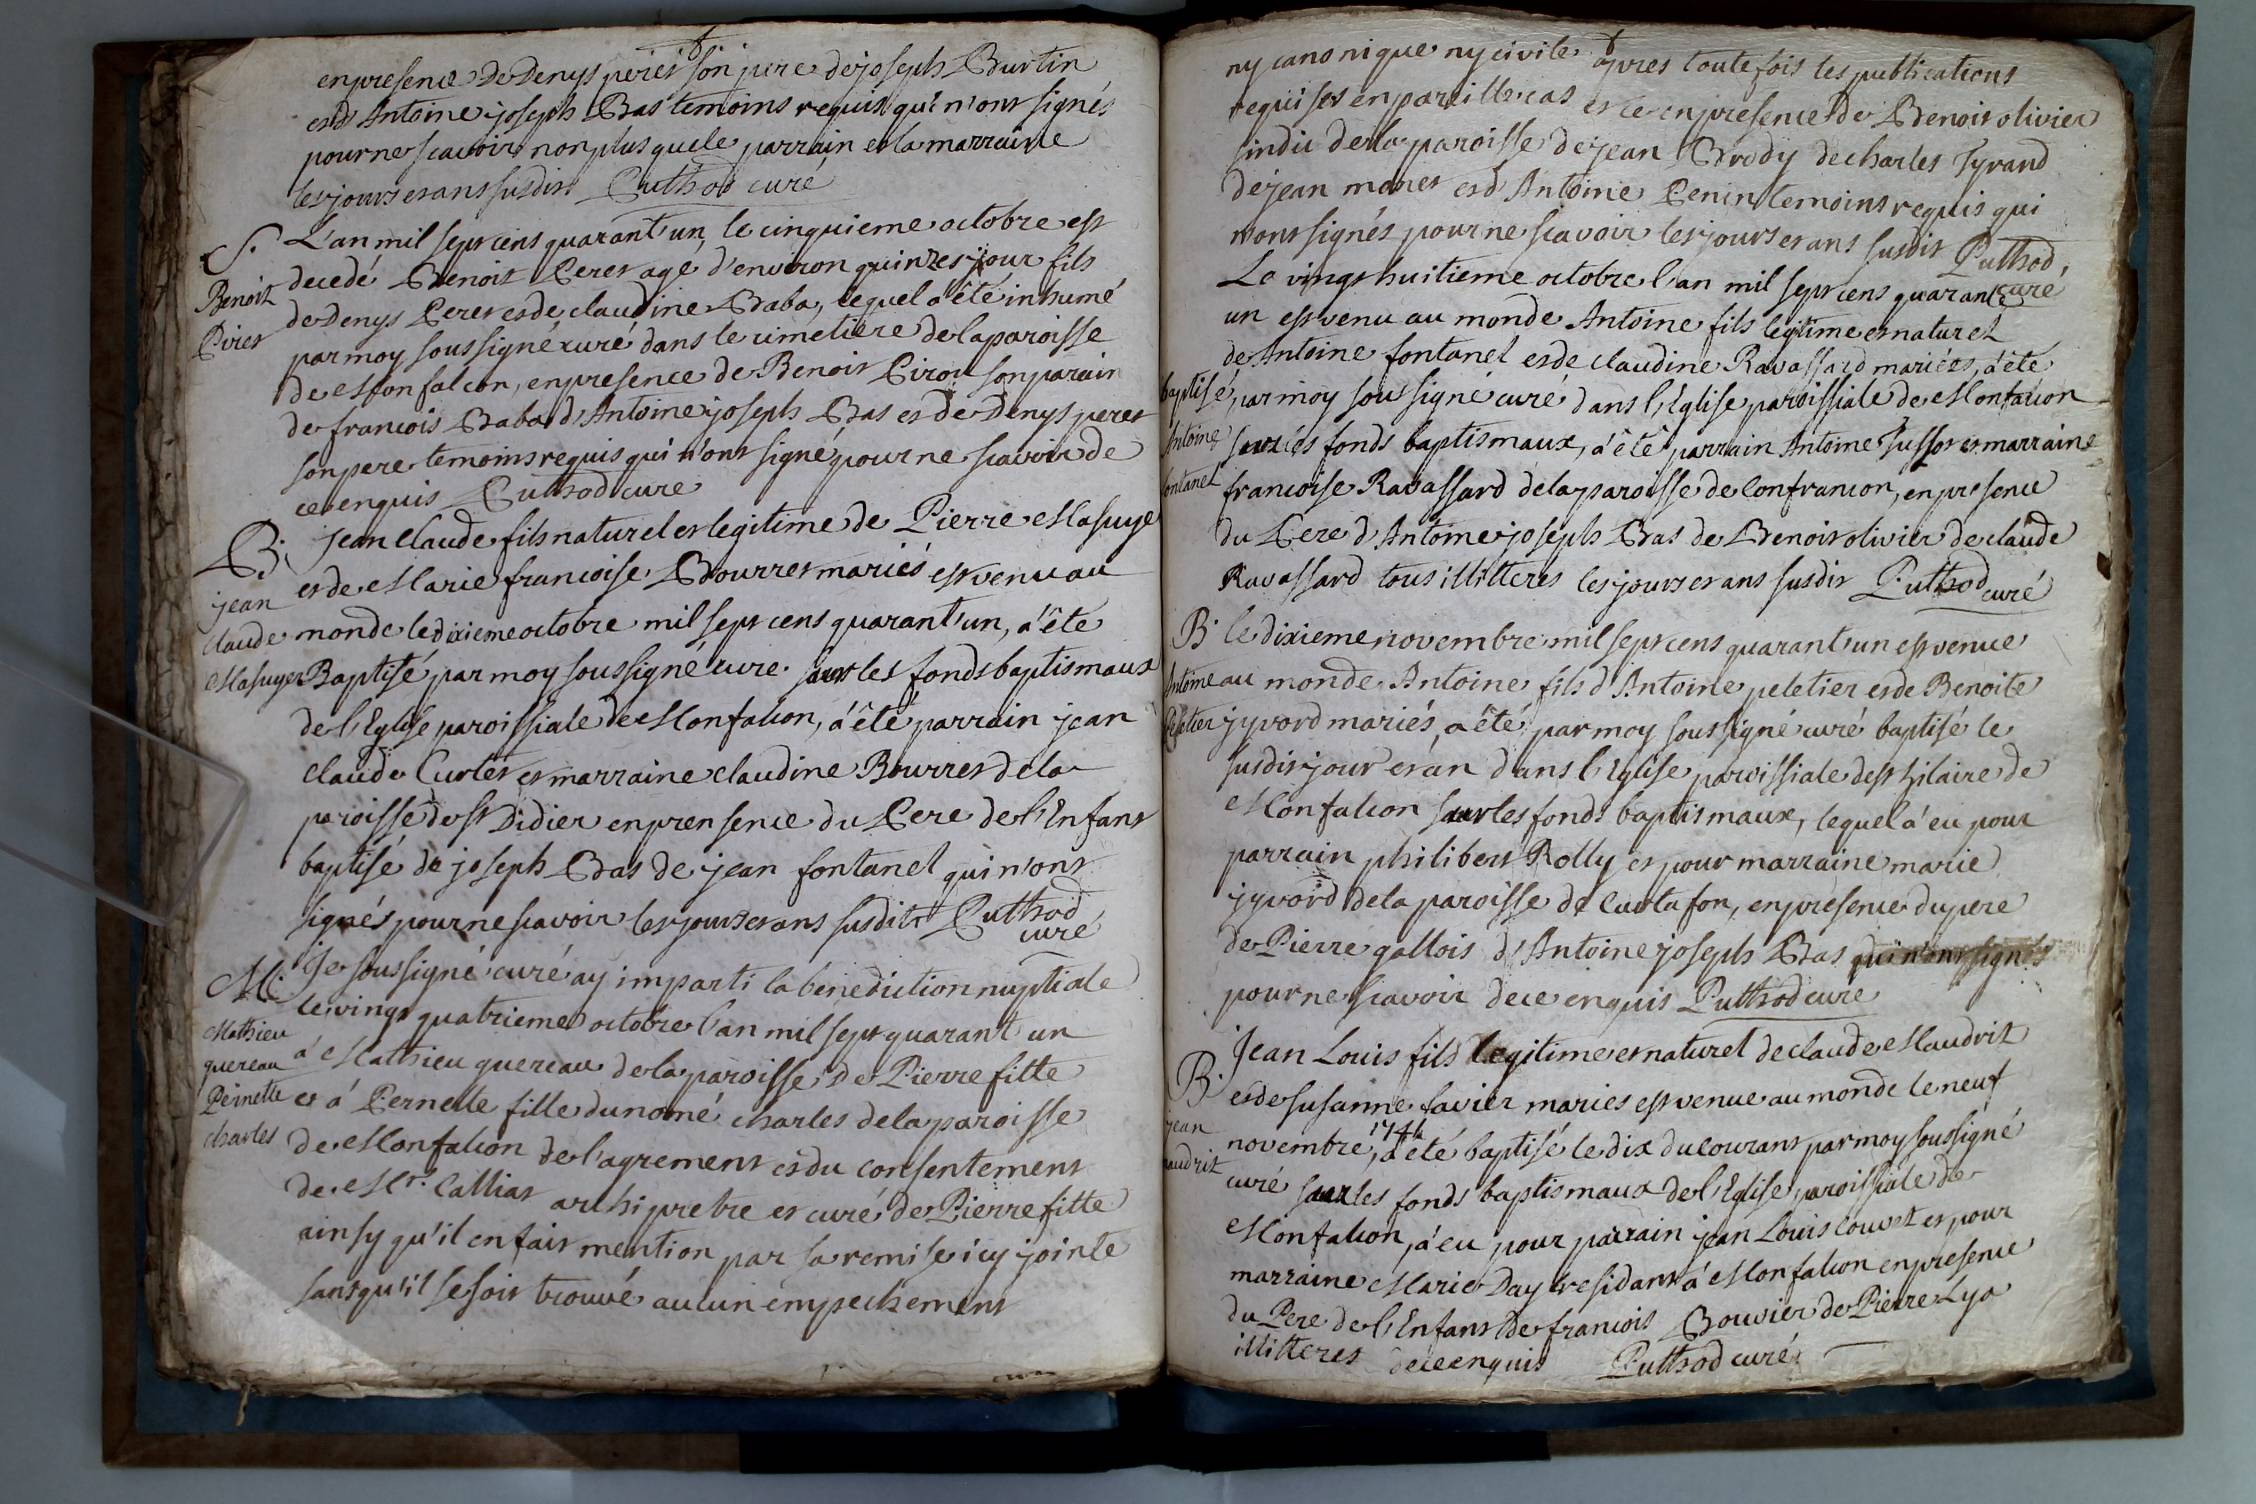 en presence De Denys peret son pere de joseph Burtin
et d'Antoine joseph Bas temoins requis qui n'ont signés
pour ne scavoir non plus que le parrain et la marraine
les jours et ans susdits Puthod curé
S.
Benoit
Piret
L'an mil sept cens quarant'un, le cinquieme octobre est
decedé Benoit Peret agé d'environ quinze jour fils
de Denys Peret et de claudine Baba, lequel a été inhumé
par moy soussigné curé dans le cimetiere de la paroisse
de Monfalcon, en presence de Benoit Pirou son parain
de francois Baba d'Antoine joseph Bas et de Denys peret
son pere temoins requis qui n'ont signé pour ne scavoir de
ce enquis Puthod cure
B.
jean
claude
Masuyer
Jean Claude fils naturel et legitime de Pierre Masuyer
et de Marie francoise Bourret mariés est venu au
monde le dixieme octobre mil sept cens quarant'un, a été
Baptisé par moy soussigné cure sur les fonds baptismaux
de l'Eglise paroissiale de Monfalcon, a été parrain jean
claude Curtet et marraine claudine Bourret de la
paroisse de st Didier en prensence du Pere de l'Enfant
baptisé de joseph Bas de jean fontanel qui n'ont
signés pour ne scavoir les jours et ans susdits Puthod
curé
M.
Mathieu
quereau
Peinette
charles
Je soussigné curé ay imparti la bénediction nuptiale
le vingt quatrieme octobre l'an mil sept quarant'un
a Mathieu quereau de la paroisse de Pierre fitte
et a Pernette fille du nomé charles de la paroisse
de Monfalcon de l'agrement et du consentement
de Mr. Calliat archipretre et curé de Pierre fitte
ainsy qu'il en fait mention par sa remise icy jointe
sans qu'il se soit trouvé aucun empechement
ny canonique ny civile apres toute fois les publications
requises en pareille cas et ce en presence de Benoit olivier
sindic de la paroisse de jean Brody de charles Tyrand
de jean monet et d'Antoine Penin temoins requis qui
n'ont signés pour ne scavoir les jours et ans susdit Puthod,
cure
Le vingt huitieme octobre l'an mil sept cens quarante
un est venu au monde Antoine fils legitime et naturel
de Antoine fontanel et de claudine Ravassard mariées, a été
baptisé, par moy soussigné curé dans l'Eglise paroissiale de Monfalcon
Antoine
fontanel
sur les fonds baptismaux, a été parrain Antoine Jussot et marraine
francoise Ravassard de la paroisse de Confrancon, en presence
du Pere d'Antoine joseph Bas de Benoit olivier de claude
Ravassard tous illitteres les jours et ans susdit Puthod
curé
B.
Antoine
Peletier
le dixieme novembre mil sept cens quarant'un est venue
au monde Antoine fils d'Antoine peletier et de Benoite
jyvord mariés, a été par moy soussigné curé baptisé le
susdit jour et an dans l'Eglise paroissiale de st hilaire de
Monfalcon sur les fonds baptismaux, lequel a eu pour
parrain philibert Rolly et pour marraine marie
jyvord de la paroisse de Curtafon, en presence du pere
de Pierre gallois d'Antoine joseph Bas qui n'ont signés
pour ne scavoir de ce enquis Puthod cure
B.
jean
maudrit
Jean Louis fils legitime et naturel de claude Maudrit
et de susanne favier maries est venue au monde le neuf
novembre, 1741 a été baptisé le dix du courant par moy soussigné
curé sur les fonds baptismaux de l'Eglise paroissiale de
Monfalcon, a eu pour parrain jean Louis couvet et pour
marraine Marie Day residant a Monfalcon en presence
du Pere de l'Enfant de francois Bouvier de Pierre Lya
illitteres de ce enquis Puthod curé